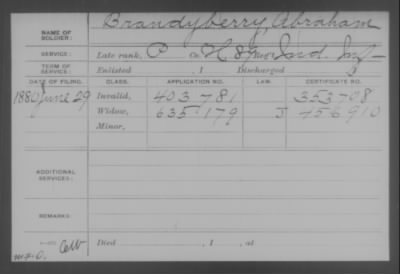 Brandyberry, Abraham
NAME OF SOLDIER:
SERVICE: Late rank, P Co. H, 89 Reg't Ind. Inf
TERM OF SERVICE: Enlisted , 1 Discharged
DATE OF FILING. CLASS. APPLICATION NO. LAW. CERTIFICATE NO.
1880 June 29 Invalid, 403 781 353 708
Widow, 635 179 J 456 910
Minor,
ADDITIONAL SERVICES:
REMARKS:
Died , 1 , at